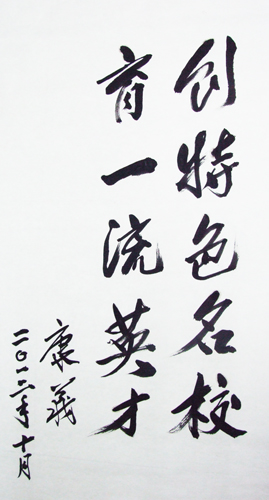 创特色名校
育一流英才
康义
二〇一二年十月